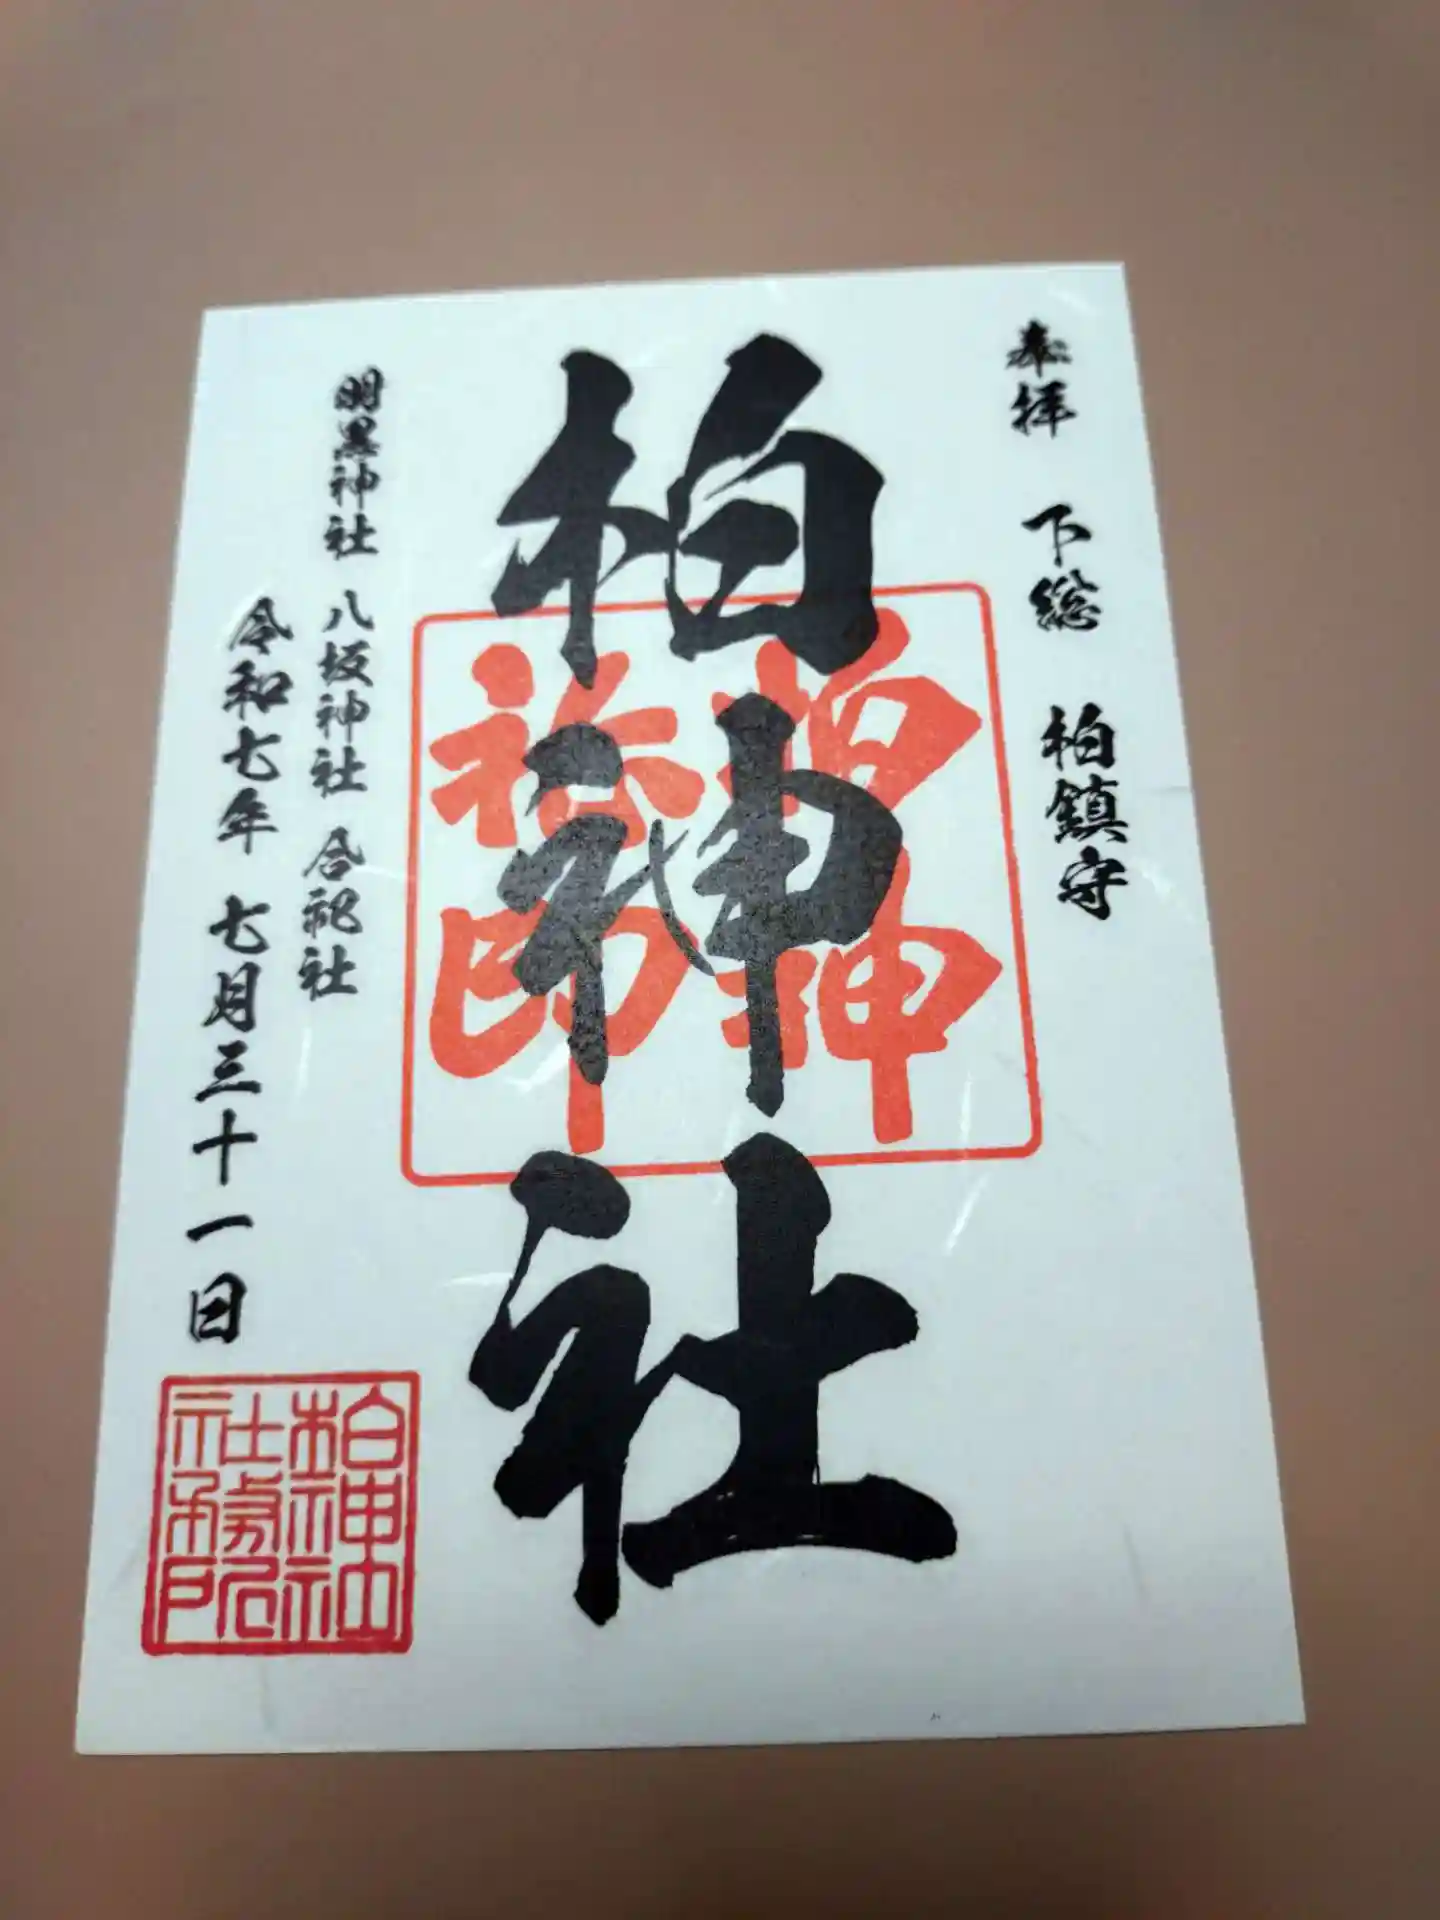 奉拝 下総 柏鎮守
柏神社
柏神
社印
羽黒神社 八坂神社 合祀社
令和七年 七月三十一日
柏神社
社務所